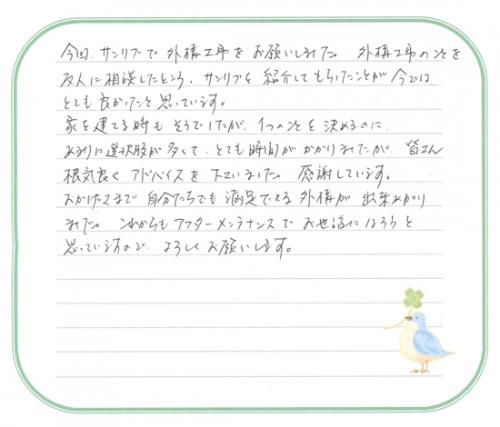 今回、サンリブで外構工事をお願いしました。外構工事のことを
友人に相談したところ、サンリブを紹介してもらったことが今では
とても良かったと思っています。
家を建てる時もそうでしたが、1つのことを決めるのに
あまりに選択肢が多くて、とても時間がかかりましたが、皆さん
根気良くアドバイスを下さいました。感謝しています。
おかげさまで自分たちでも満足できる外構が出来あがり
ました。これからもアフターメンテナンスでお世話になろうと
思っていますので、よろしくお願いします。